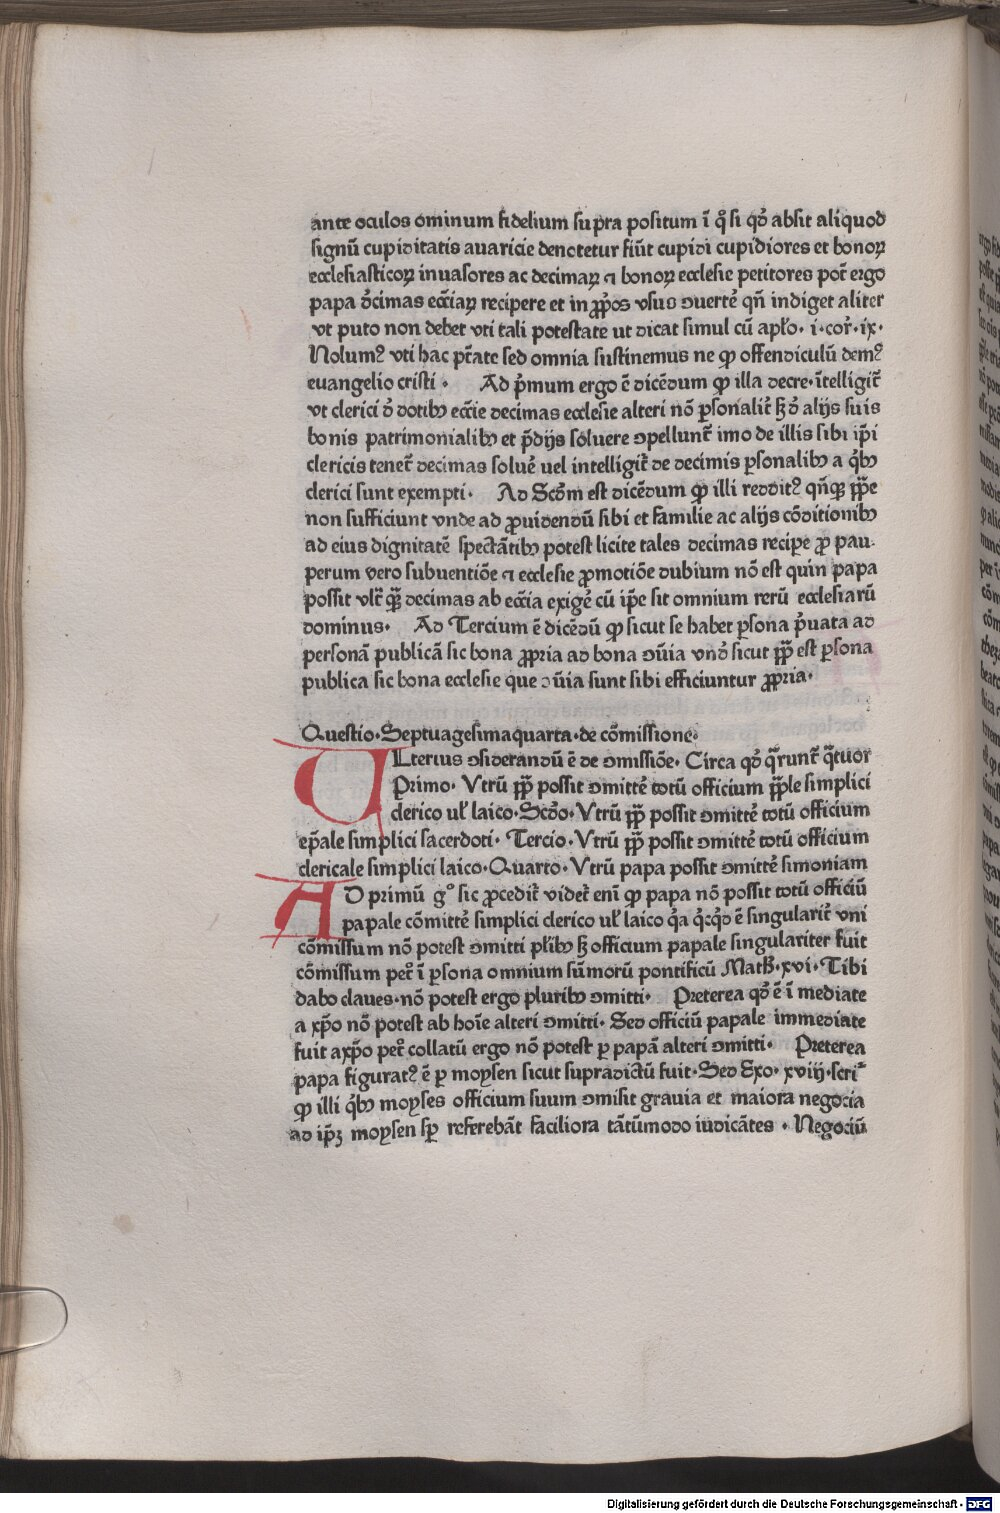 ante oculos ominum fidelium supra positum ī qͦ si qđ absit aliquod
signū cupiditatis avaricie denotetur fiūt cupidi cupidiores et bonoꝝ
ecclesiasticoꝝ inuasores ac decimaꝝ ⁊ bonoꝝ ecclesie petitores pot̄ ergo
papa ꝺ̄cimas ecc̄iaꝝ recipere et in ꝓp̄os vsus ↄuerte᷑ qn̄ indiget aliter
vt puto non debet vti tali potestate ut dicat simul cū aplo᷑· i·cor᷑·ix·
Nolum᷒ vti hac p̄tate sed omnia sustinemus ne ꝙ offendiculū dem᷒
euangelio cristi · Ad p᷑mum ergo ē dicēdum ꝙ illa decre·ītelligit᷑
vt clerici ꝺ̄ dotibꝫ ecc̄ie decimas ecclesie alteri nō ꝑsonalit᷑ sꝫ ꝺ̄ alijs suis
bonis patrimonialibꝫ et p̄dijs soluere ↄpellunt᷑ imo de illis sibi ip̄i
clericis tenet᷑ decimas solue᷑ uel intelligit᷑ de decimis ꝑsonalibꝫ a q᷑bꝫ
clerici sunt exempti· Ad Scd̄m est dicēdum ꝙ illi reddit᷒ qn̄qꝫ pp̄e
non sufficiunt vnde ad ꝓuidendū sibi et familie ac alijs cōditionibꝫ
ad eius dignitatē spectātibꝫ potest licite tales decimas recipe᷑ ꝓ pau
perum vero subuentiōe ⁊ ecclesie ꝓmotiōe dubium nō est quin papa
possit vlt᷑ qꝫ̄ decimas ab ecc̄ia exige᷑ cū ip̄e sit omnium rerū ecclesiarū
dominus· Ad Tercium ē dicēdū ꝙ sicut se habet ꝑsona p᷑uata ad
personā publicā sic bona ꝓpria ad bona ↄūia vnđ sicut pp̄ est ꝑsona
publica sic bona ecclesie que ↄūia sunt sibi efficiuntur ꝓpria·
Questio·Septuagesimaquarta·de cōmissione·
ULterius ↄsiderandū ē de ↄmissiōe· Circa qđ q̄runt᷑ q̄tuor
Primo· Vtrū pp̄ possit ↄmitte᷑ totū officium pp̄le simplici
clerico ul᷑ laico·Scd̄o·Vtrū pp̄ possit ↄmitte᷑ totū officium
ep̄ale simplici sacerdoti· Tercio·Vtrū pp̄ possit ↄmitte᷑ totū officium
clericale simplici laico·Quarto·Vtrū papa possit ↄmitte᷑ simoniam
AD primū gͦ sic ꝓcedit᷑ videt᷑ enī ꝙ papa nō possit totū officiū
papale cōmitte᷑ simplici clerico ul᷑ laico q᷑a q᷑cq᷑d ē singularit᷑ vni
cōmissum nō potest ↄmitti pl᷑ibꝫ sꝫ officium papale singulariter fuit
cōmissum pet͛ ī ꝑsona omnium sūmorū pontificū Math᷑·xvi·Tibi
dabo claues·nō potest ergo pluribꝫ ↄmitti· Preterea qđ ē ī mediate
a xp̄o nō potest ab hoīe alteri ↄmitti· Sed officiū papale immediate
fuit axp̄o pet͛ collatū ergo nō potest ꝑ papā alteri ↄmitti· Preterea
papa figurat᷒ ē ꝑ moysen sicut supradictū fuit·Sed Exo· xviij·scri᷑
ꝙ illi q᷑bꝫ moyses officium suum ↄmisit grauia et maiora negocia
ad ip̄ꝫ moysen sꝑ referebāt faciliora tātūmodo iudicātes · Negociū
Digitalisierung gefördert durch die Deutsche Forschungsgemeinschaft - DFG